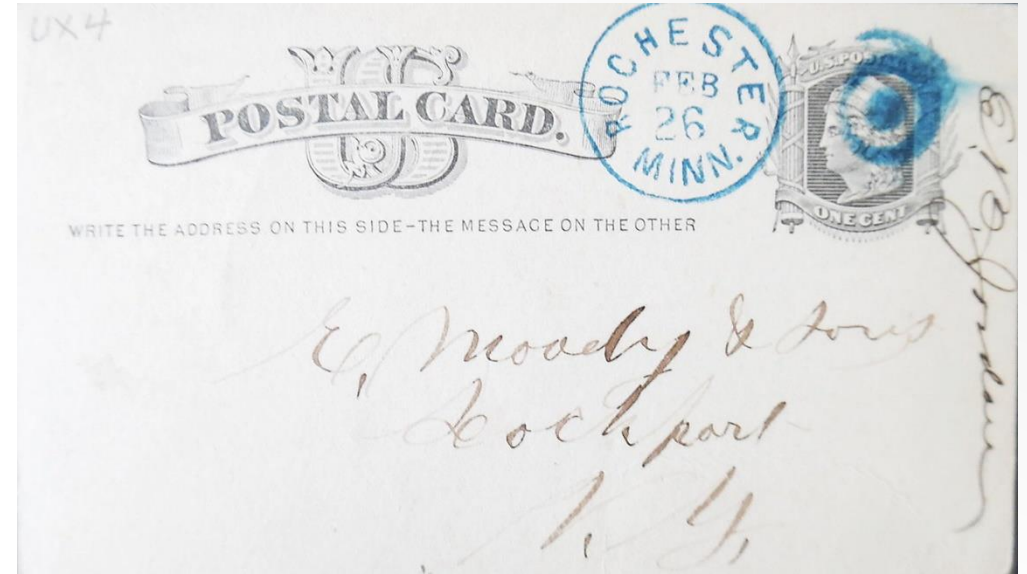 UX4
US
POSTAL CARD.
ROCHESTER
FEB
26
MINN.
U.S. POSTAGE
ONE CENT
WRITE THE ADDRESS ON THIS SIDE–THE MESSAGE ON THE OTHER
E. Moody & Sons
Lockport
N. Y.
Jordan